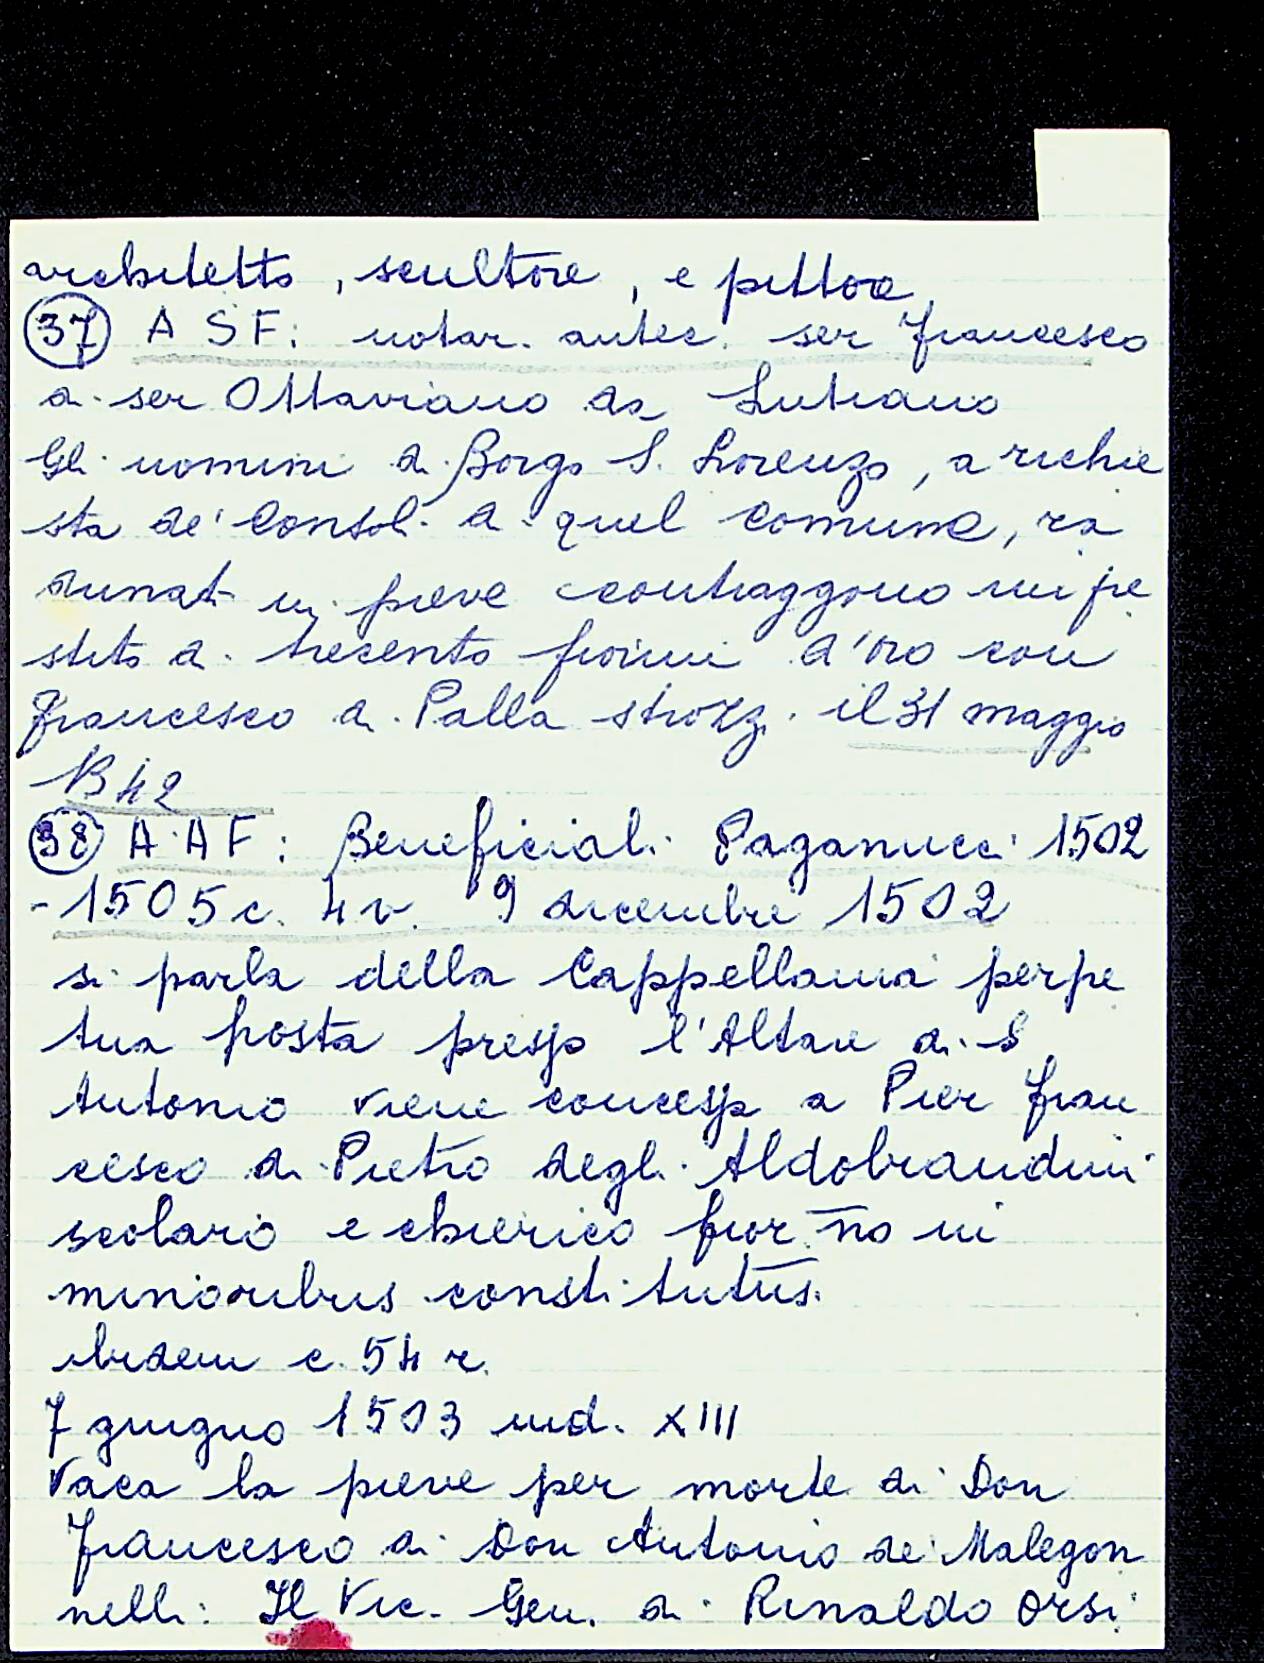 architetto, scultore, e pittore,
37 A S F: notar. antec. ser Francesco
di ser Ottaviano da Lutiano
Gli uomini di Borgo S. Lorenzo, a richie
sta de' Consoli di quel comune, ra
dunati in pieve contraggono un pre
stito di trecento fiorini d'oro con
Francesco di Palla Strozzi il 31 maggio
1342
38 A A F: Beneficiali Paganucci 1502
-1505 c. 4 v. 9 dicembre 1502
si parla della Cappellania perpe
tua posta presso l'Altare di S
Antonio viene concessa a Pier Fran
cesco di Pietro degli Aldobrandini
scolaro e chierico fior.no in
minoribus constitutus.
ibidem c. 54 r.
7 giugno 1503 ind. XIII
Vaca la pieve per morte di Don
Francesco di Don Antonio de' Malegon
nelli: Il Vic. Gen. di Rinaldo Orsi